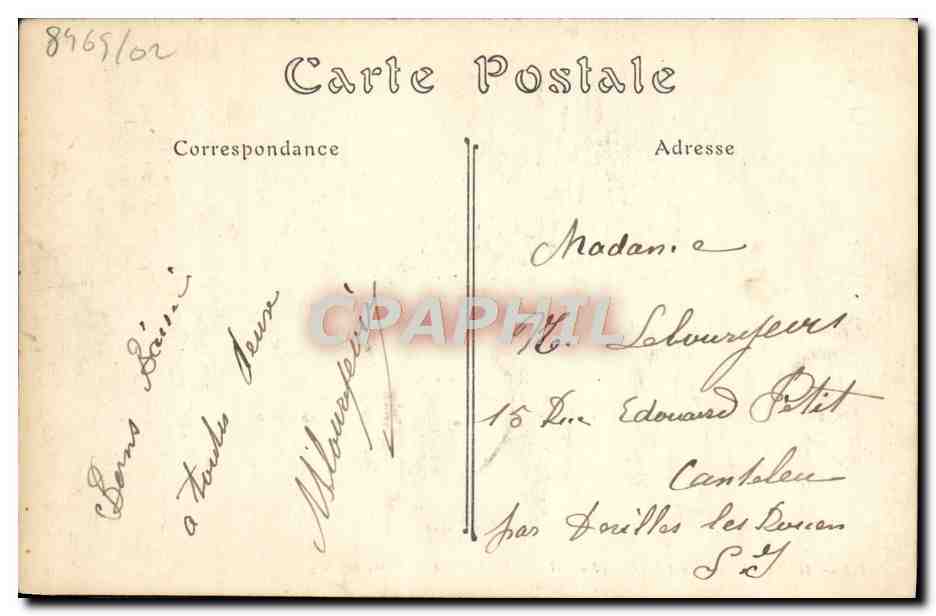 8969/02
Carte Postale
Correspondance
Adresse
Bons Baisé
a toutes deux
Madame
M. Lebourgeois
15 Rue Edouard Petit
Canteleu
par Deville les Rouen
S. I
CPAPHIL